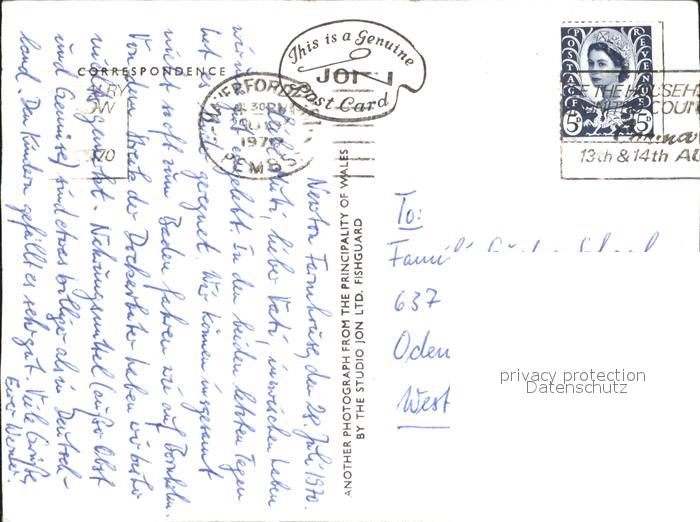 CORRESPONDENCE
This is a Genuine
JON
Post Card
HAVERFORD
4.30PM
1970
PEMBS.
POSTAGE
REVENUE
5D
THE HOUSEH
COUN
13th & 14th AU
1970
ANOTHER PHOTOGRAPH FROM THE PRINCIPALITY OF WALES
BY THE STUDIO JON LTD. FISHGUARD
Newton Farmhouse, den 28. Juli 1970.
Liebe Mutti, lieber Vati, inzwischen haben
wir uns gut eingelebt. In den beiden letzten Tagen
hat es geregnet. Wir können insgesamt
nicht so oft zum Baden fahren wie auf Bornholm.
Von dem Streik der Dockarbeiter haben wir bisher
nichts gemerkt. Nahrungsmittel (außer Obst
und Gemüse) sind etwas billiger als in Deutsch-
land. Den Kindern gefällt es sehr gut. Viele Grüße,
Euer Werner.
To:
Famili
637
Oden
West
privacy protection
Datenschutz